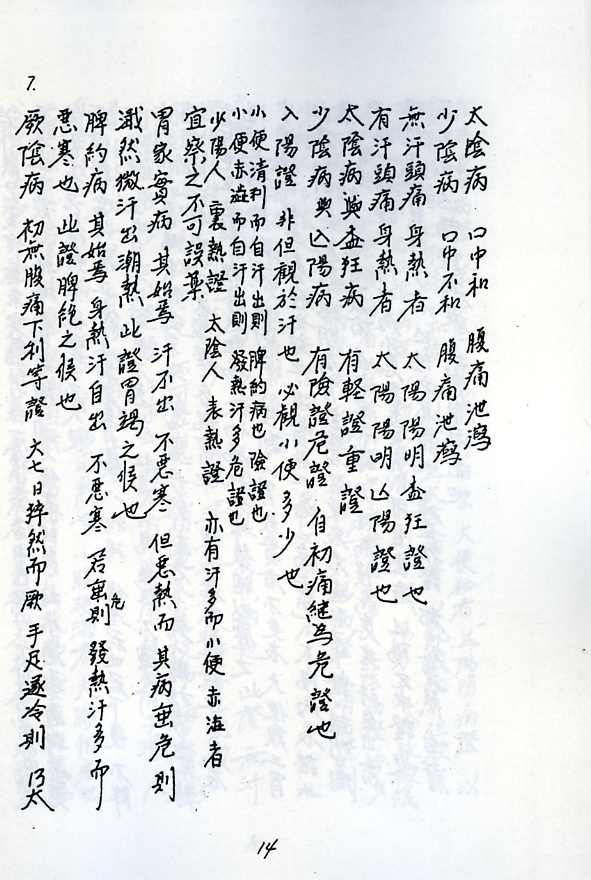 7.
太陰病 口中和 腹痛泄瀉
少陰病 口中不和 腹痛泄瀉
無汗頭痛 身熱者 太陽陽明盃狂證也
有汗頭痛 身熱者 太陽陽明亾陽證也
太陰病與盃狂病 有軽證重證
少陰病與亾陽病 有險證危證 自初痛継為危證也
入陽證 非但觀於汗也 必觀小便多少也
小便清利而自汗出則 脾約病也 險證也
小便赤澁而自汗出則 發熱汗多危證也
少陽人 裏熱證 太陰人 表熱證 亦有汗多而小便赤澁者
宜察之不可誤藥
胃家實病 其始焉 汗不出 不惡寒 但惡熱而 其病垂危則
濈然微汗出潮熱 此證胃竭之候也
脾約病 其始焉 身熱汗自出 不惡寒 若垂危則 發熱汗多而
惡寒也 此證脾絶之候也
厥陰病 初無腹痛下利等證 六七日猝然而厥 手足逐冷則 乃太
14